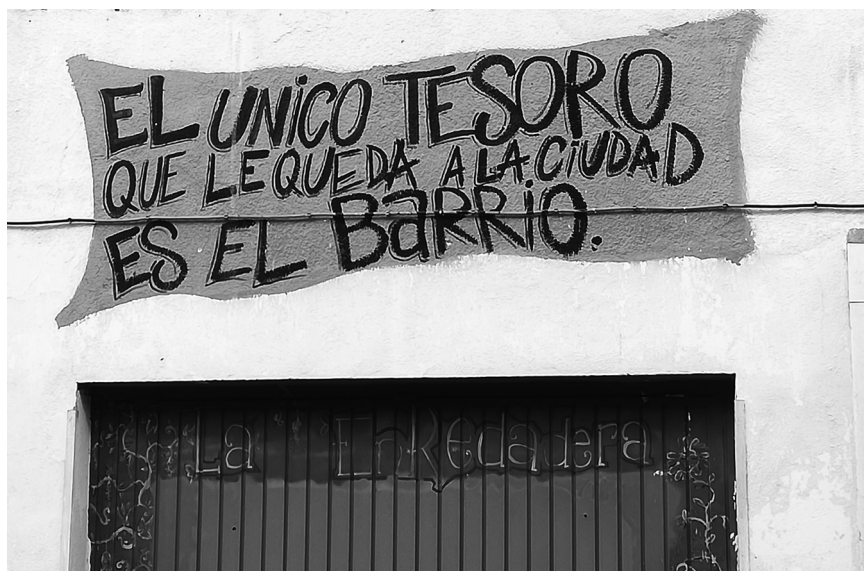 EL UNiCO TESORO
QUE LE QUEDA A LA CiUDAD
ES EL BaRRiO.
La EnRedadera